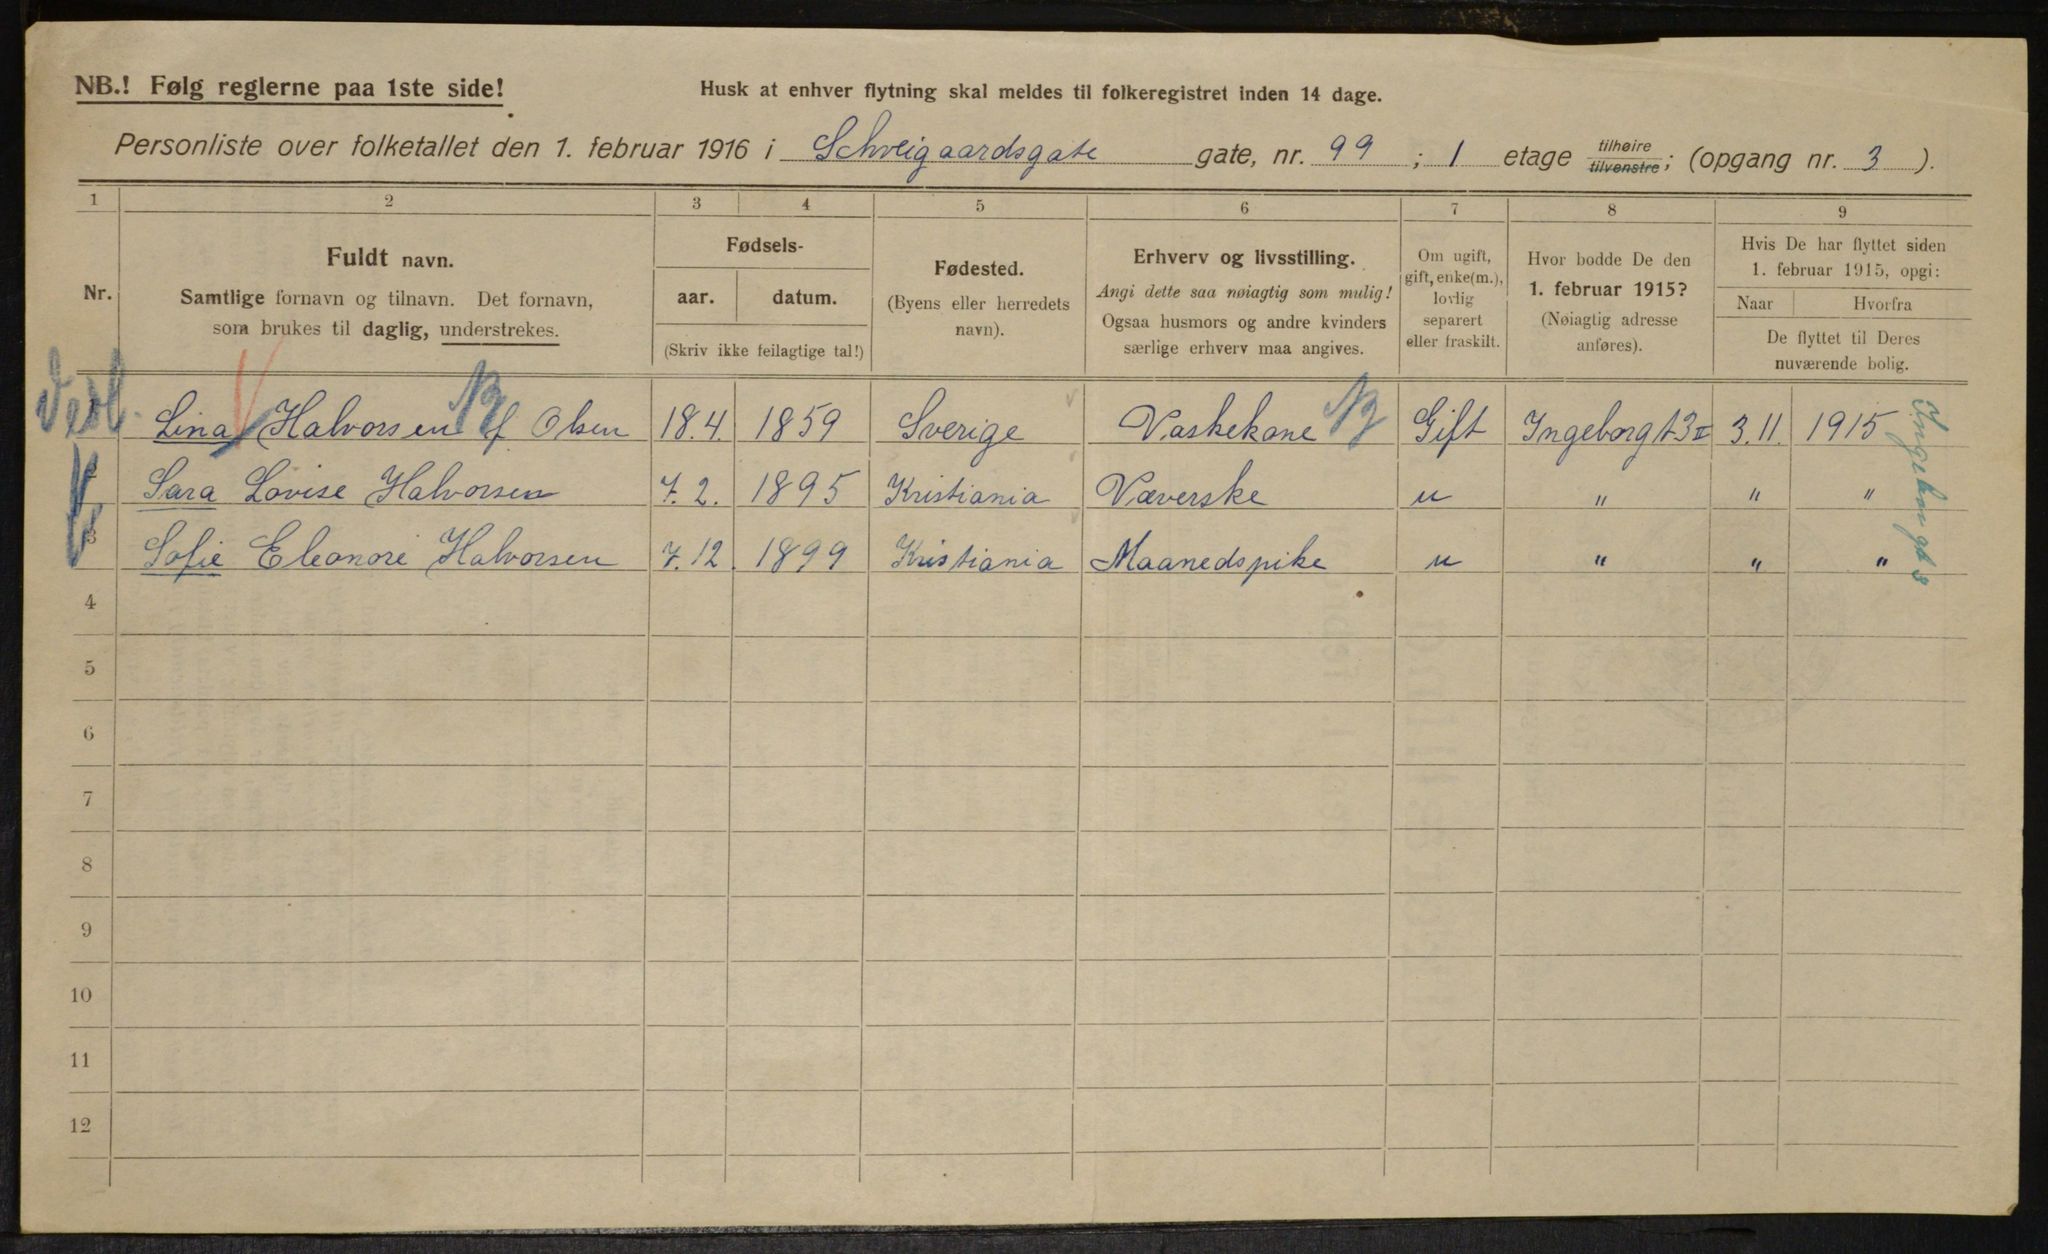 NB.! Følg reglerne paa 1ste side!
Husk at enhver flytning skal meldes til folkeregistret inden 14 dage.
Personliste over folketallet den 1. februar 1916 i Schveigaardsgate gate, nr. 99 ; 1 etage tilhøire tilvenstre; (opgang nr. 3 ).
1 2 3 4 5 6 7 8 9
Nr.
Fuldt navn.
Samtlige fornavn og tilnavn. Det fornavn,
som brukes til daglig, understrekes.
Fødsels-
aar. datum.
(Skriv ikke feilagtige tal!)
Fødested.
(Byens eller herredets
navn).
Erhverv og livsstilling.
Angi dette saa nøiagtig som mulig!
Ogsaa husmors og andre kvinders
særlige erhverv maa angives.
Om ugift,
gift, enke(m.),
lovlig
separert
eller fraskilt.
Hvor bodde De den
1. februar 1915?
(Nøiagtig adresse
anføres).
Hvis De har flyttet siden
1. februar 1915, opgi:
Naar Hvorfra
De flyttet til Deres
nuværende bolig.
Lina Halvorsen f Olsen 18.4. 1859 Sverige Vaskekone Gift Ingeborgt 3 II 3.11. 1915
Sara Lovise Halvorsen 7.2. 1895 Kristiania Væverske u " " "
3 Sofie Eleonore Halvorsen 7.12. 1899 Kristiania Maanedspike u " " "
Ingeborgt 3
4
5
6
7
8
9
10
11
12